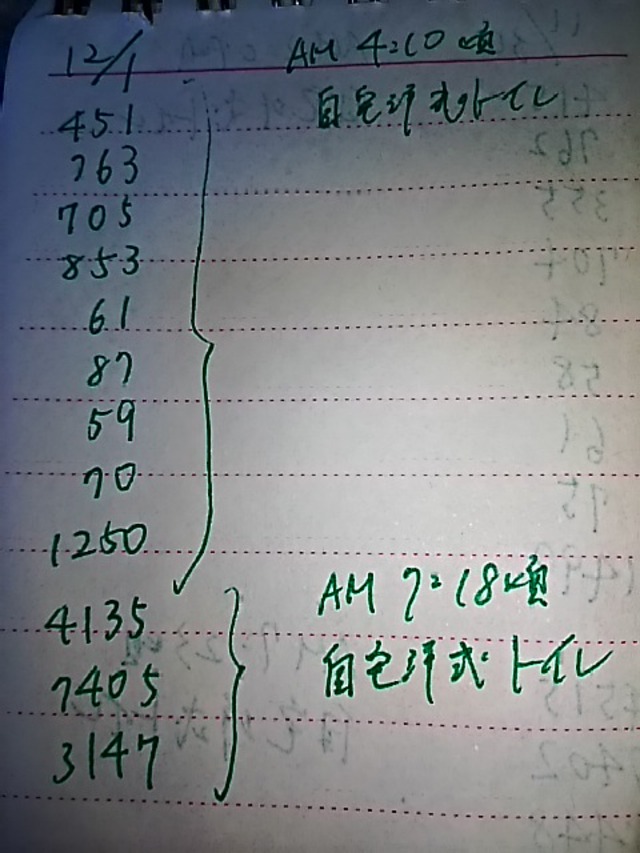 12/1 AM 4:10頃
451 自宅洋式トイレ
763
705
853
61
87
59
70
1250
4135 AM 7:18頃
7405 自宅洋式トイレ
3147